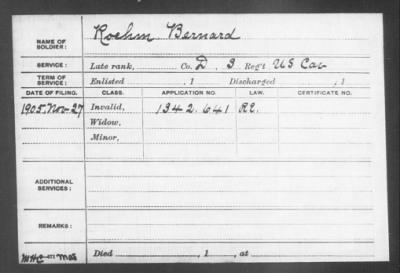 NAME OF SOLDIER: Roehm Bernard
SERVICE: Late rank, Co. D, 3 Reg't US Cav
TERM OF SERVICE: Enlisted , 1 Discharged , 1
DATE OF FILING. CLASS. APPLICATION NO. LAW. CERTIFICATE NO.
1905, Nov-27 Invalid, 1342.641 RE.
Widow,
Minor,
ADDITIONAL SERVICES:
REMARKS:
Died , 1 , at